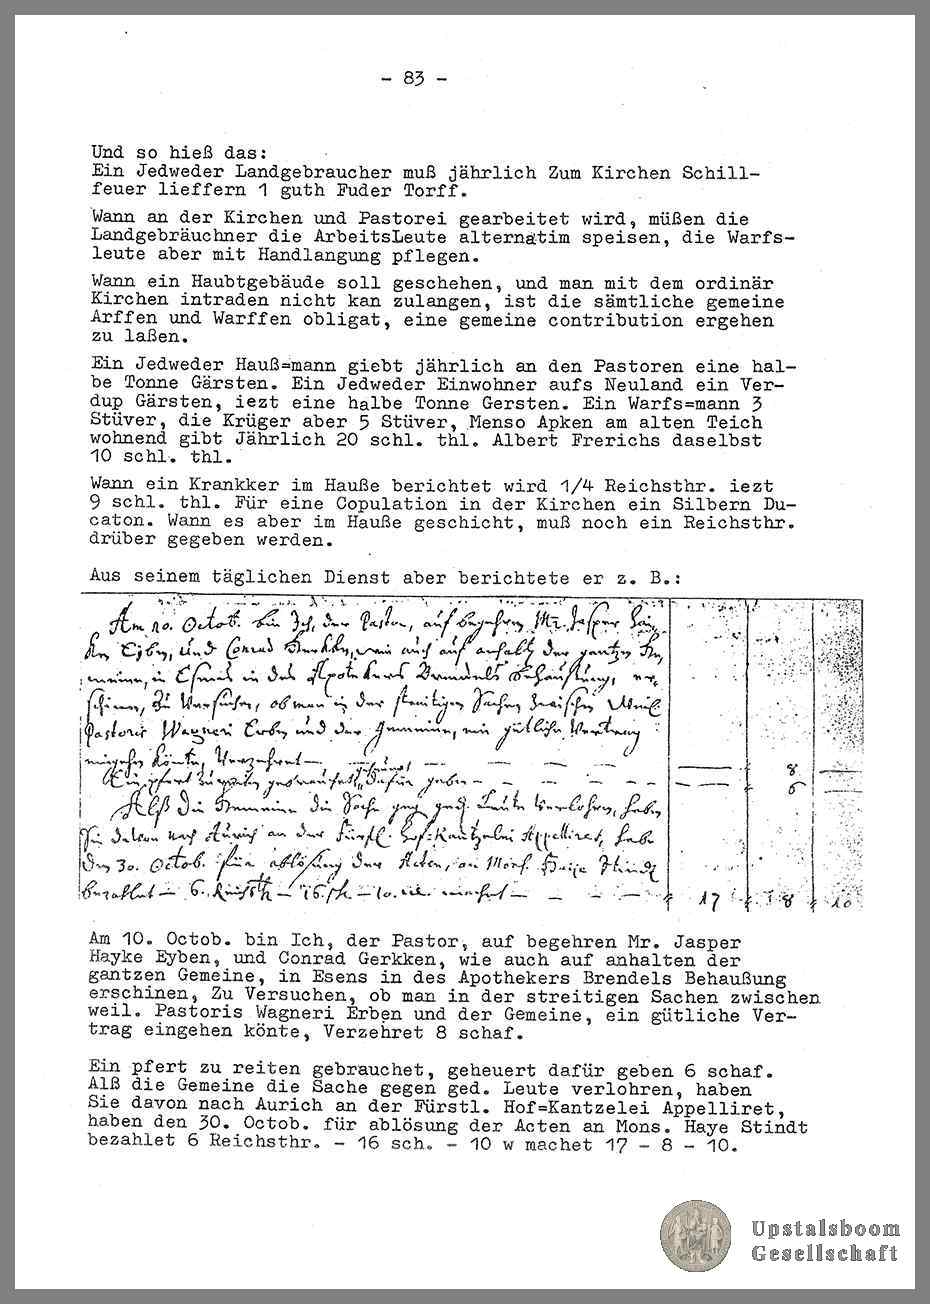 - 83 -
Und so hieß das:
Ein Jedweder Landgebraucher muß jährlich Zum Kirchen Schill-
feuer lieffern 1 guth Fuder Torff.
Wann an der Kirchen und Pastorei gearbeitet wird, müßen die
Landgebräuchner die ArbeitsLeute alternatim speisen, die Warfs-
leute aber mit Handlangung pflegen.
Wann ein Haubtgebäude soll geschehen, und man mit dem ordinär
Kirchen intraden nicht kan zulangen, ist die sämtliche gemeine
Arffen und Warffen obligat, eine gemeine contribution ergehen
zu laßen.
Ein Jedweder Hauß=mann giebt jährlich an den Pastoren eine hal-
be Tonne Gärsten. Ein Jedweder Einwohner aufs Neuland ein Ver-
dup Gärsten, iezt eine halbe Tonne Gersten. Ein Warfs=mann 3
Stüver, die Krüger aber 5 Stüver, Menso Apken am alten Teich
wohnend gibt Jährlich 20 schl. thl. Albert Frerichs daselbst
10 schl. thl.
Wann ein Krankker im Hauße berichtet wird 1/4 Reichsthr. iezt
9 schl. thl. Für eine Copulation in der Kirchen ein Silbern Du-
caton. Wann es aber im Hauße geschicht, muß noch ein Reichsthr.
drüber gegeben werden.
Aus seinem täglichen Dienst aber berichtete er z. B.:
Am 10. Octob. bin Ich, der Pastor, auf begehren Mr. Jasper Hay-
ke Eyben, und Conrad Gerkken, wie auch auf anhalten der gantzen Ge-
meine, in Esens in des Apothekers Brendels Behaußung, er-
schinen, Zu Versuchen, ob man in der streitigen Sachen zwischen Weil.
Pastoris Wagneri Erben und der Gemeine, ein gütliche Vertrag
eingehen könte, Verzehret — — — — 8
Ein pfert zu reiten gebrauchet, geheuert dafür geben — — — — 6
Alß die Gemeine die Sache geg. ged. Leute verlohren, haben
Sie davon nach Aurich an der Fürstl. Hof=Kantzelei Appelliret, habe
den 30. Octob. für ablösung der Acten, an Mons. Haije Stindt
bezahlet — 6. Reichsth — 16. sch — 10. w. machet — — — 17 8 10
Am 10. Octob. bin Ich, der Pastor, auf begehren Mr. Jasper
Hayke Eyben, und Conrad Gerkken, wie auch auf anhalten der
gantzen Gemeine, in Esens in des Apothekers Brendels Behaußung
erschinen, Zu Versuchen, ob man in der streitigen Sachen zwischen
weil. Pastoris Wagneri Erben und der Gemeine, ein gütliche Ver-
trag eingehen könte, Verzehret 8 schaf.
Ein pfert zu reiten gebrauchet, geheuert dafür geben 6 schaf.
Alß die Gemeine die Sache gegen ged. Leute verlohren, haben
Sie davon nach Aurich an der Fürstl. Hof=Kantzelei Appelliret,
haben den 30. Octob. für ablösung der Acten an Mons. Haye Stindt
bezahlet 6 Reichsthr. - 16 sch. - 10 w machet 17 - 8 - 10.
Upstalsboom
Gesellschaft